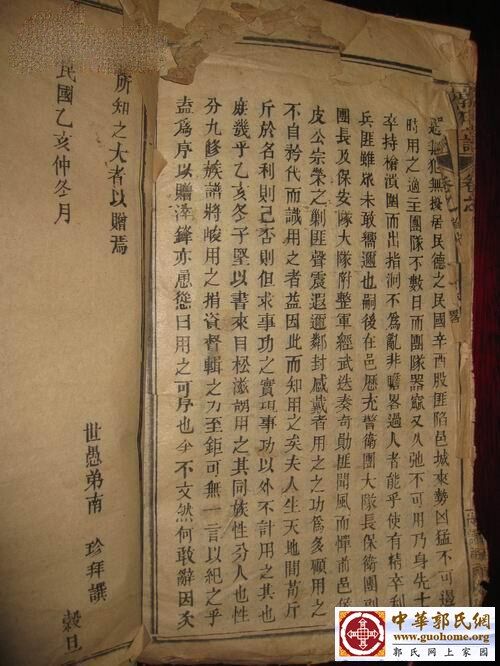 犯無擾居民德之民國辛酉股匪陷邑城來勢凶猛不可遏
時用之適主團隊不數日而團隊器窳又久弛不可用乃身先士
卒持槍潰圍而出指洞不為亂非膽畧過人者能乎使有精卒利
兵匪雖眾未敢嚮邇也嗣後在邑歷充警衛團大隊長保衛團副
團長及保安隊大隊附整軍經武迭奏奇勛匪聞風而憚前邑侯
皮公宗榮之剿匪聲震遐邇鄰封咸戴者用之之功為多頓用之
不自矜伐而識用之者益因此而知用之矣夫人生天地間苟斤
斤於名利則已否則但求事功之實事功以外不計用之其也
庶幾乎乙亥冬子堅以書來目松滋用之其同族性分人也性
分九修族譜將峻用之捐資督輯之力至鉅可無一言以紀之乎
盍為序以贈鋒亦慂慫曰用之可序也今不文然何敢辭因矢
所知之大者以贈焉
世愚弟南珍拜譔
民國乙亥仲冬月 穀旦
中華郭氏網
www.guohome.org
郭氏网上家园